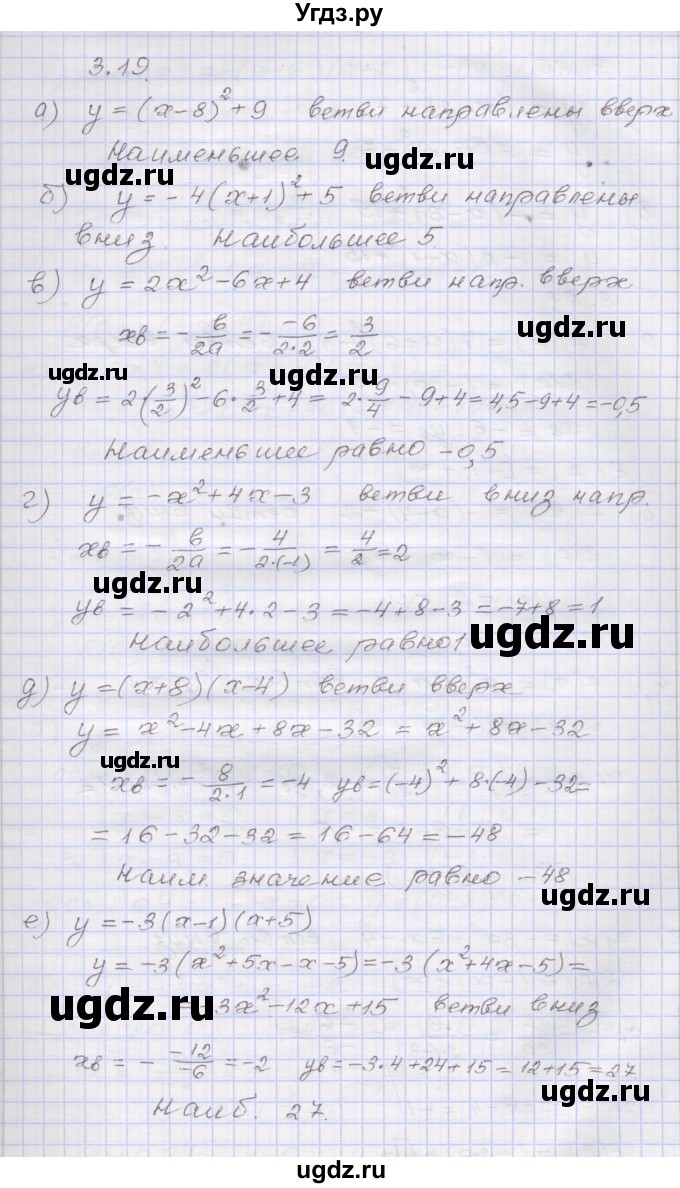 Угдз.ру
3.19.
а) y = (x-8)² + 9 ветви направлены вверх
Наименьшее 9.
ugdz.ru ugdz.ru
б) y = -4(x+1)² + 5 ветви направлены
вниз. Наибольшее 5
ugdz.ru
в) y = 2x² - 6x + 4 ветви напр. вверх
xв = -в/2а = - -6/2·2 = 3/2
ugdz.ru
ugdz.ru
yв = 2·(3/2)² - 6·3/2 + 4 = 2·9/4 - 9 + 4 = 4,5 - 9 + 4 = -0,5
Наименьшее равно -0,5
г) y = -x² + 4x - 3 ветви вниз напр.
xв = -в/2а = - 4/2·(-1) = 4/2 = 2
ugdz.ru
yв = -2² + 4·2 - 3 = -4 + 8 - 3 = -7 + 8 = 1
Наибольшее равно 1
ugdz.ru
д) y = (x+8)(x-4) ветви вверх
y = x² - 4x + 8x - 32 = x² + 8x - 32
ugdz.ru
xв = - 8/2·1 = -4 yв = (-4)² + 8·(-4) - 32 =
= 16 - 32 - 32 = 16 - 64 = -48
Наим. значение равно -48
ugdz.ru
е) y = -3(x-1)(x+5)
y = -3(x² + 5x - x - 5) = -3(x² + 4x - 5) =
ugdz.ru
3x² - 12x + 15 ветви вниз
ugdz.ru
xв = - -12/-6 = -2 yв = -3·4 + 24 + 15 = 12 + 15 = 27
Наиб. 27.
ugdz.ru
ugdz.ru